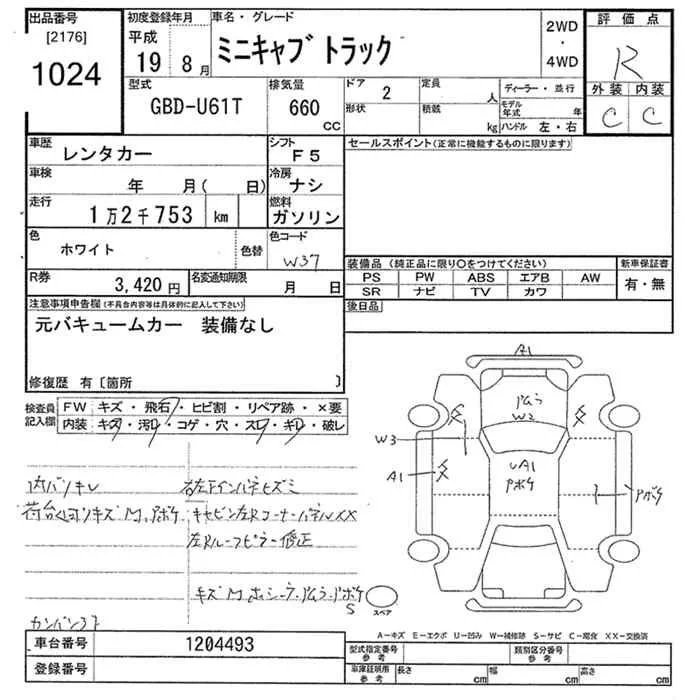 出品番号
[2176]
1024
初度登録年月
平成
19 8月
車名・グレード
ミニキャブ トラック
2WD
・
4WD
評価点
R
外装 内装
C C
型式
GBD-U61T
排気量
660
CC
ドア 2
形状
定員
人
積載
kg
ディーラー・並行
モデル年式 年
ハンドル 左・右
車歴
レンタカー
シフト
F5
車検
年 月( 日)
冷房
ナシ
走行
1万2千753 km
燃料
ガソリン
色
ホワイト
色替
色コード
W37
R券
3,420円
名変通知期限
月 日
セールスポイント(正常に機能するものに限ります)
装備品(純正品に限り○をつけてください)
PS PW ABS エアB AW
SR ナビ TV カワ
新車保証書
有・無
後日品
注意事項申告欄(不具合内容等は具体的に記入して下さい)
元バキュームカー 装備なし
修復歴 有〔箇所 〕
検査員
記入欄
FW キズ・飛石・ヒビ割・リペア跡・×要
内装 キズ・汚レ・コゲ・穴・スレ・キレ・破レ
内バンキレ
左Rルーフピラー修正
A1
W2
W3
A1
UA1
スペア
A-キズ E-エクボ U-凹み W-補修跡 S-サビ C-腐食 XX-交換済
車台番号 1204493
登録番号
型式指定番号
参考
類別区分番号
参考
車庫証明用
参考
長さ cm
幅 cm
高さ cm